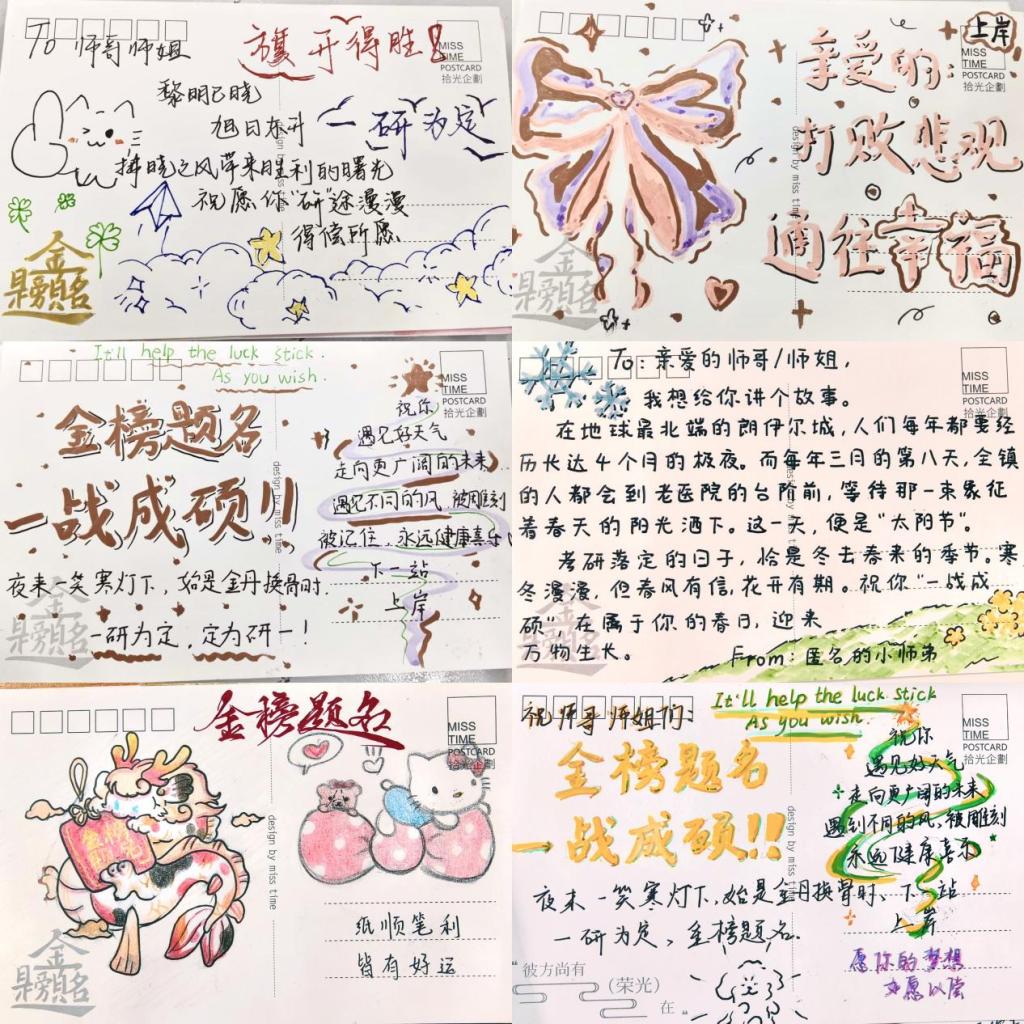 To 师哥师姐
旗开得胜!
MISS
TIME
POSTCARD
拾光企劃
黎明已晓
旭日东升
一研为定
拂晓之风带来胜利的曙光
祝愿你"研"途漫漫
得偿所愿
金
榜題名
design by miss time
上岸
亲爱的:
MISS
TIME
POSTCARD
拾光企劃
打败悲观
通往幸福
design by miss time
金
榜題名
It'll help the luck stick.
As you wish.
MISS
TIME
POSTCARD
拾光企劃
金榜题名
一战成硕!!
夜来一笑寒灯下,始是金丹换骨时.
一研为定、定为研一!
祝你
遇见好天气
走向更广阔的未来
遇见不同的风、被雕刻
被记住、永远健康喜乐
下一站
上岸
design by miss time
金
榜題名
To:亲爱的师哥/师姐,
MISS
TIME
POSTCARD
拾光企劃
我想给你讲个故事。
在地球最北端的朗伊尔城,人们每年都要经
历长达4个月的极夜。而每年三月的第八天,全镇
的人都会到老医院的台阶前,等待那一束象征
着春天的阳光洒下。这一天,便是"太阳节"。
考研落定的日子,恰是冬去春来的季节。寒
冬漫漫,但春风有信,花开有期。祝你"一战成
硕"在属于你的春日,迎来
万物生长。
From:匿名的小师弟
金
榜題名
金榜题名
MISS
TIME
POSTCARD
拾光企劃
金榜
design by miss time
纸顺笔利
皆有好运
金
榜題名
祝师哥师姐们:
It'll help the luck stick
As you wish.
MISS
TIME
POSTCARD
拾光企劃
金榜题名
一战成硕!!
夜来一笑寒灯下,始是金丹换骨时、
一研为定、金榜题名.
祝你
遇见好天气
走向更广阔的未来
遇到不同的风、被雕刻
永远健康喜乐
下一站
上岸
愿你的梦想
如愿以偿
design by miss time
"彼方尚有
(荣光)
在"